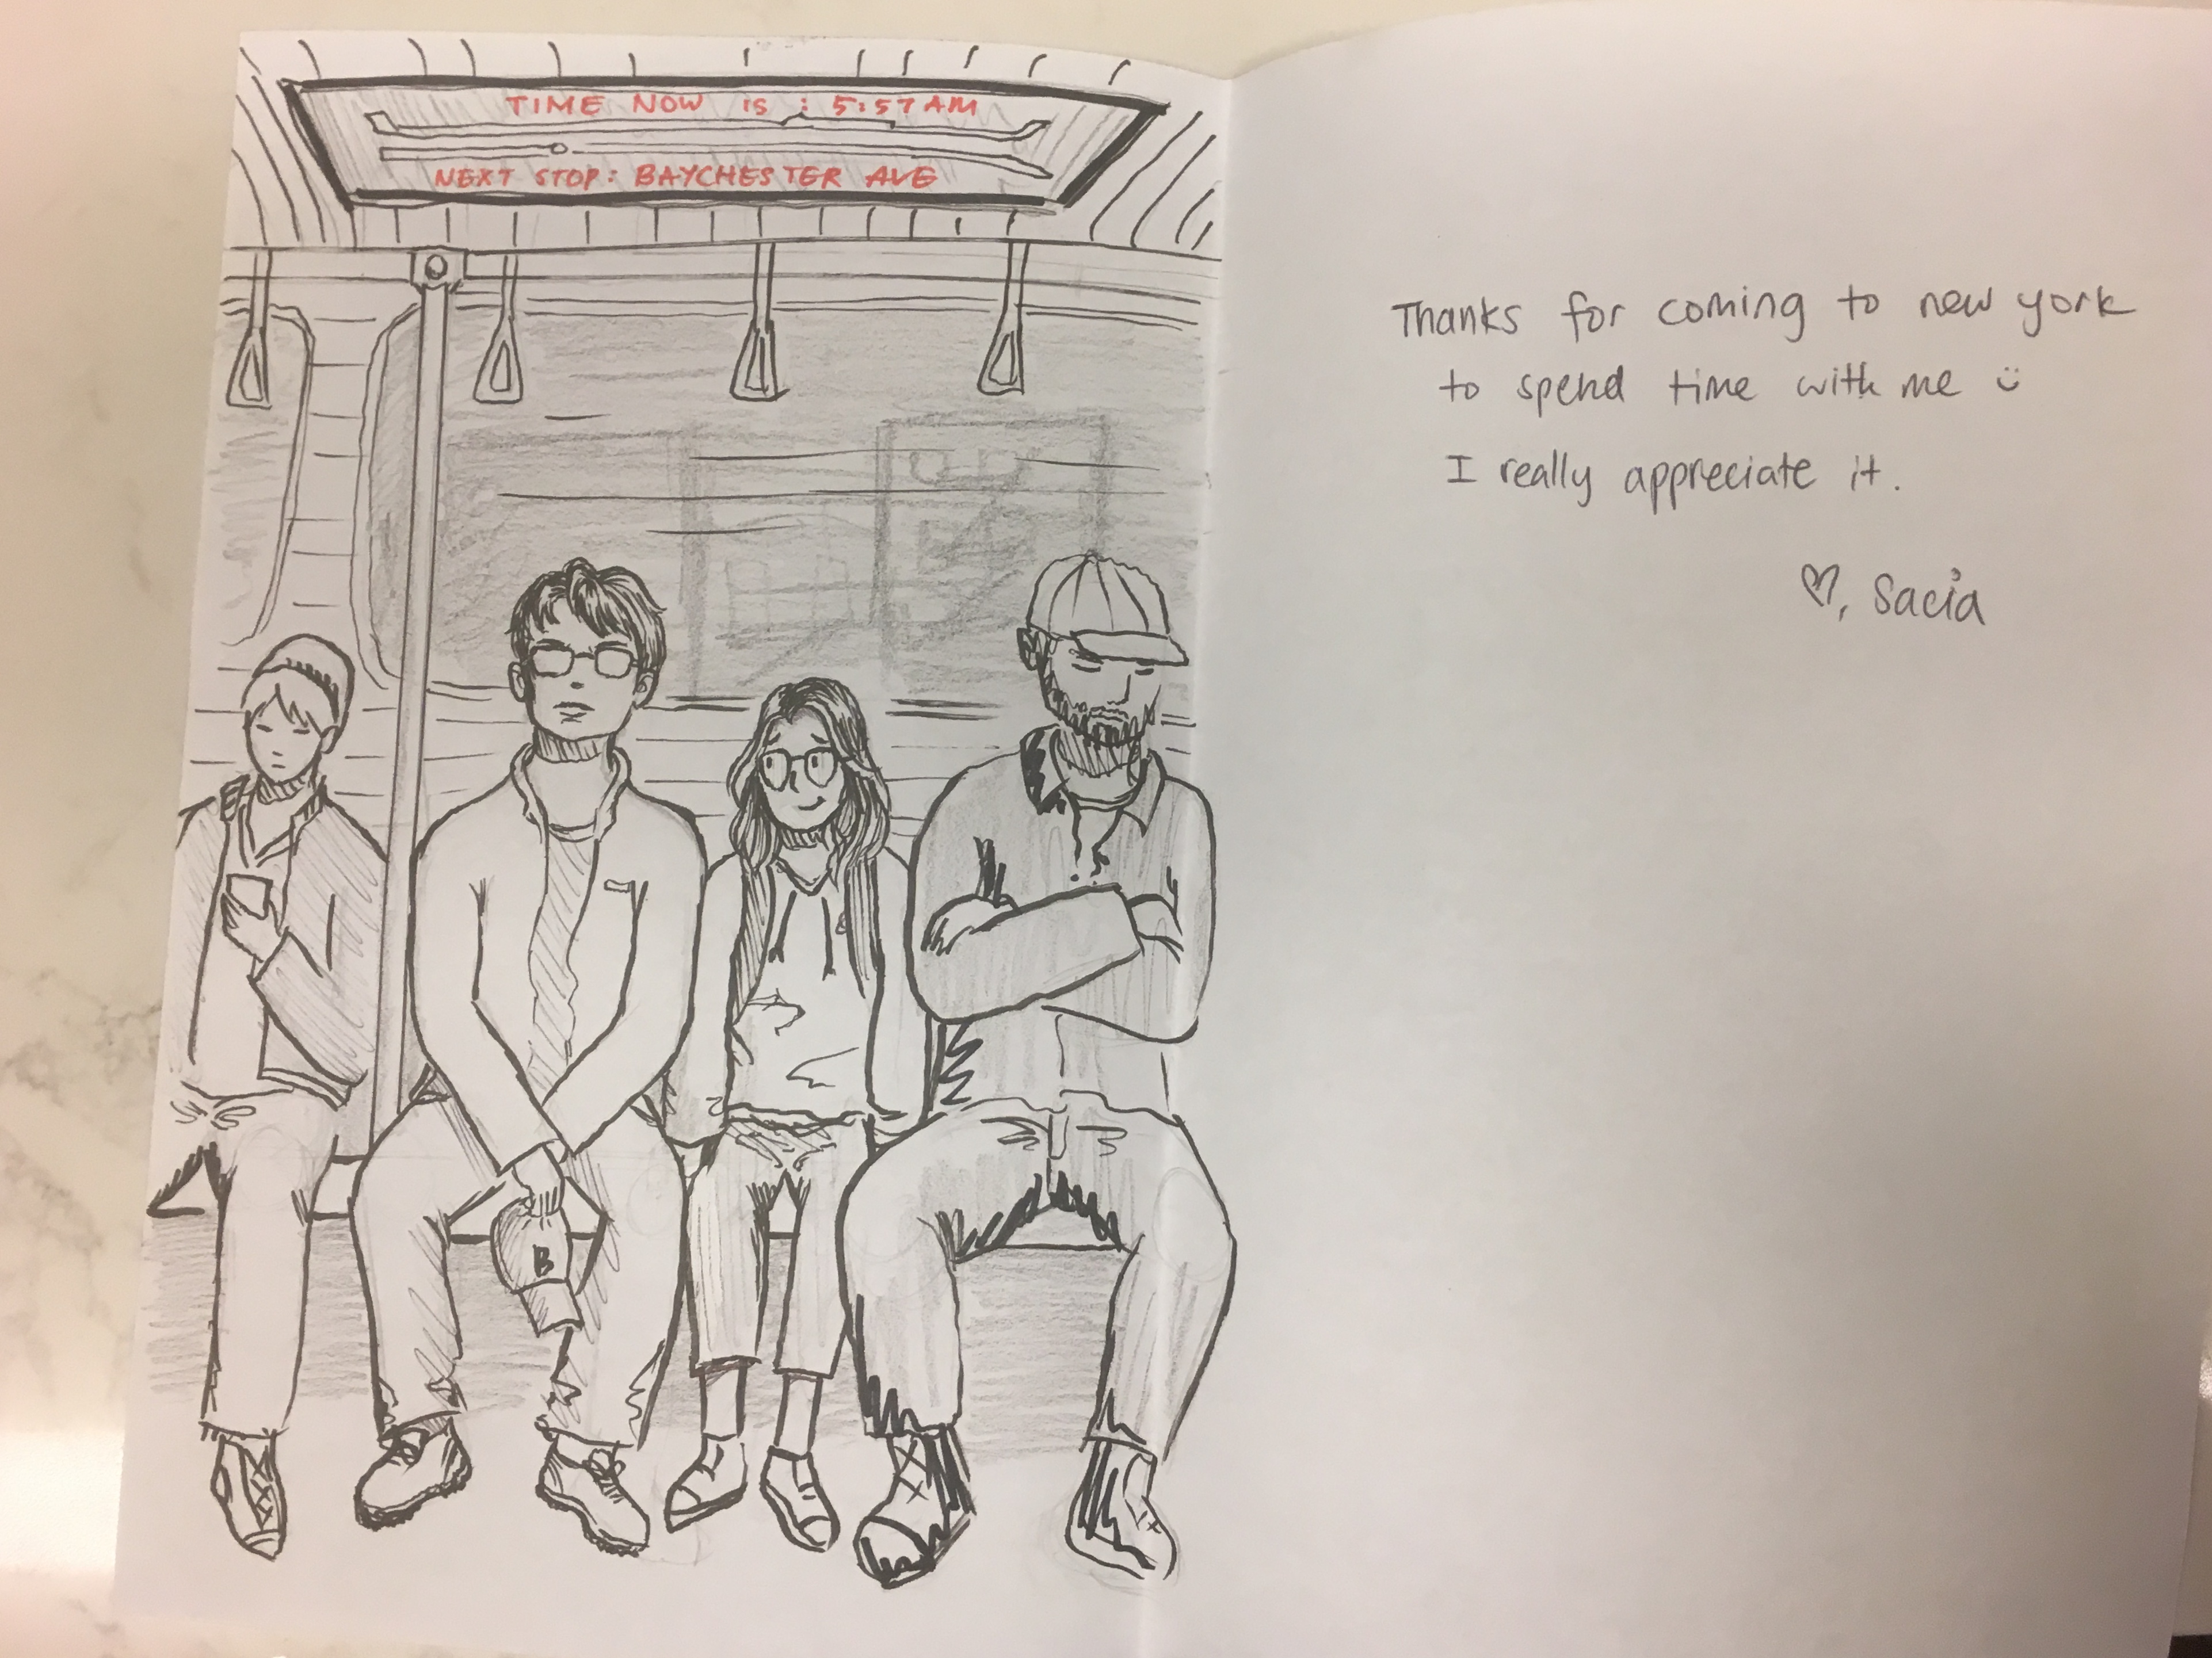 TIME NOW is : 5:57 AM
NEXT STOP: BAYCHESTER AVE
B
Thanks for coming to new york
to spend time with me ü
I really appreciate it.
♡, Sacia